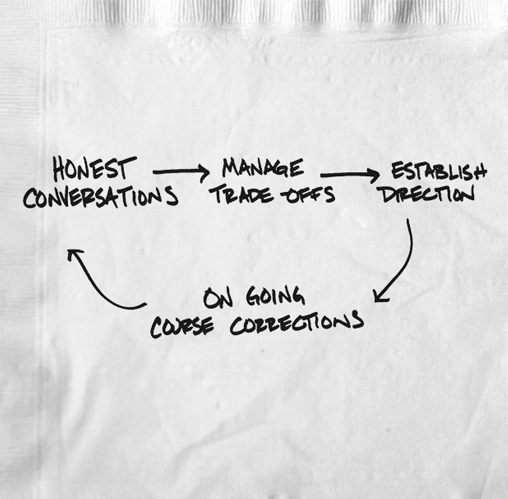 HONEST
CONVERSATIONS
MANAGE
TRADE-OFFS
ESTABLISH
DIRECTION
ON GOING
COURSE CORRECTIONS